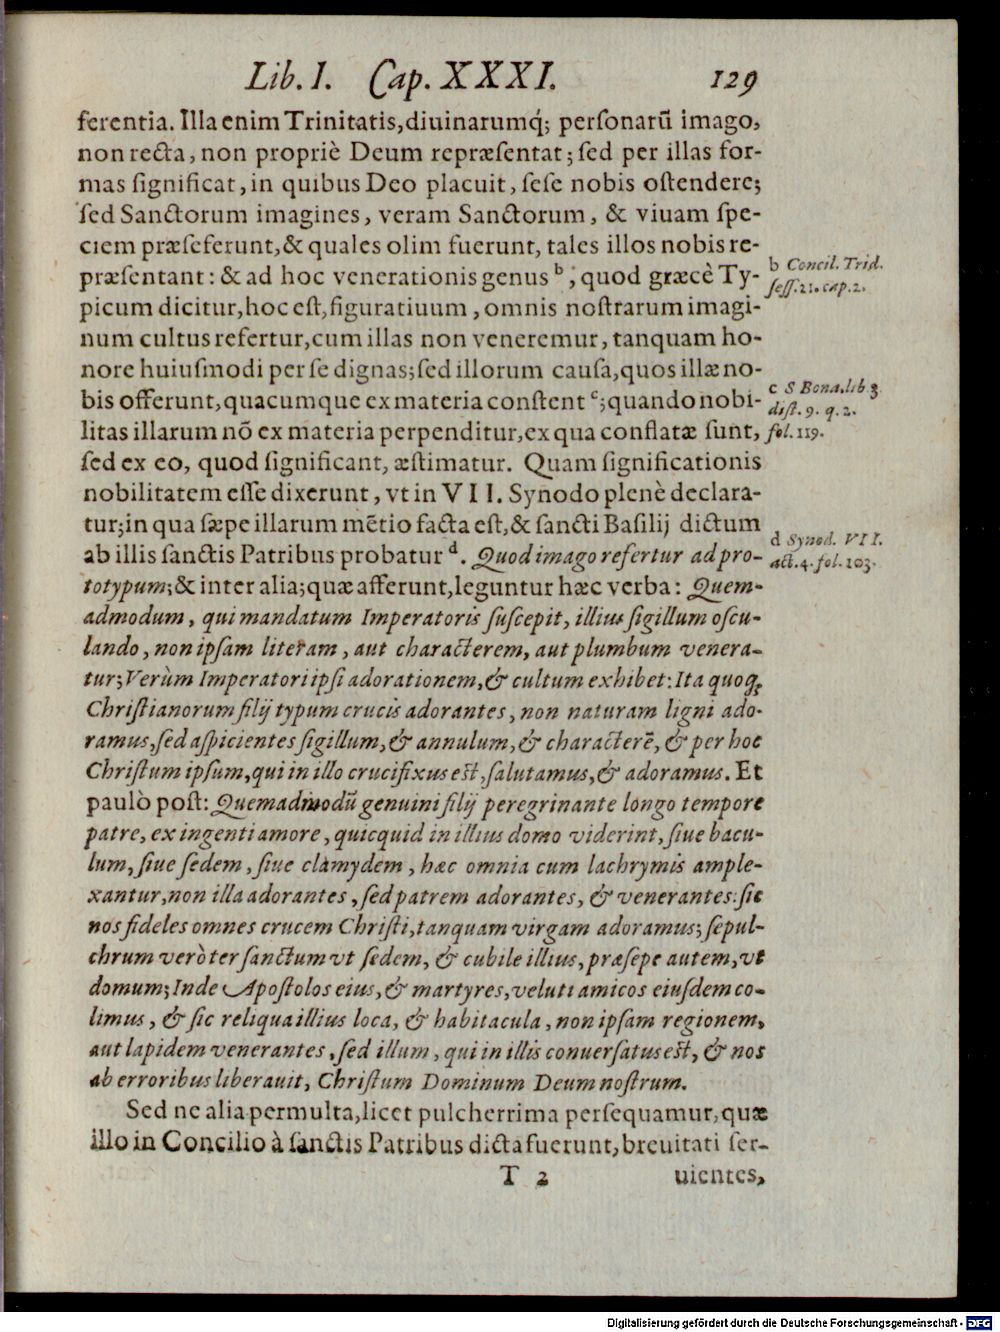 Lib. I. Cap. XXXI. 129
ferentia. Illa enim Trinitatis, diuinarumq́; personarũ imago,
non recta, non propriè Deum repræsentat; sed per illas for-
mas significat, in quibus Deo placuit, sese nobis ostendere;
sed Sanctorum imagines, veram Sanctorum, & viuam spe-
ciem præseferunt, & quales olim fuerunt, tales illos nobis re-
præsentant: & ad hoc venerationis genus b, quod græcè Ty-
picum dicitur, hoc est, figuratiuum, omnis nostrarum imagi-
num cultus refertur, cum illas non veneremur, tanquam ho-
nore huiusmodi per se dignas; sed illorum causa, quos illæ no-
bis offerunt, quacumque ex materia constent c; quando nobi-
litas illarum nõ ex materia perpenditur, ex qua conflatæ sunt,
sed ex eo, quod significant, æstimatur. Quam significationis
nobilitatem esse dixerunt, vt in VII. Synodo plenè declara-
tur; in qua sæpe illarum mẽtio facta est, & sancti Basilij dictum
ab illis sanctis Patribus probatur d. Quod imago refertur ad pro-
totypum; & inter alia; quæ afferunt, leguntur hæc verba: Quem-
admodum, qui mandatum Imperatoris suscepit, illius sigillum oscu-
lando, non ipsam literam, aut characterem, aut plumbum venera-
tur; Verùm Imperatori ipsi adorationem, & cultum exhibet: Ita quoq;
Christianorum filij typum crucis adorantes, non naturam ligni ado-
ramus, sed aspicientes sigillum, & annulum, & characterẽ, & per hoc
Christum ipsum, qui in illo crucifixus est, salutamus, & adoramus. Et
paulò post: Quemadmodũ genuini filij peregrinante longo tempore
patre, ex ingenti amore, quicquid in illius domo viderint, siue bacu-
lum, siue sedem, siue clamydem, hæc omnia cum lachrymis ample-
xantur, non illa adorantes, sed patrem adorantes, & venerantes: sic
nos fideles omnes crucem Christi, tanquam virgam adoramus; sepul-
chrum verò ter sanctum vt sedem, & cubile illius, præsepe autem, vt
domum; Inde Apostolos eius, & martyres, veluti amicos eiusdem co-
limus, & sic reliqua illius loca, & habitacula, non ipsam regionem,
aut lapidem venerantes, sed illum, qui in illis conuersatus est, & nos
ab erroribus liberauit, Christum Dominum Deum nostrum.
Sed ne alia permulta, licet pulcherrima persequamur, quæ
illo in Concilio à sanctis Patribus dicta fuerunt, breuitati ser-
T 2 uientes,
b Concil. Trid.
sess. 21. cap. 2.
c S Bona. lib 3
dist. 9. q. 2.
fol. 119.
d Synod. VII.
act. 4. fol. 103.
Digitalisierung gefördert durch die Deutsche Forschungsgemeinschaft - DFG